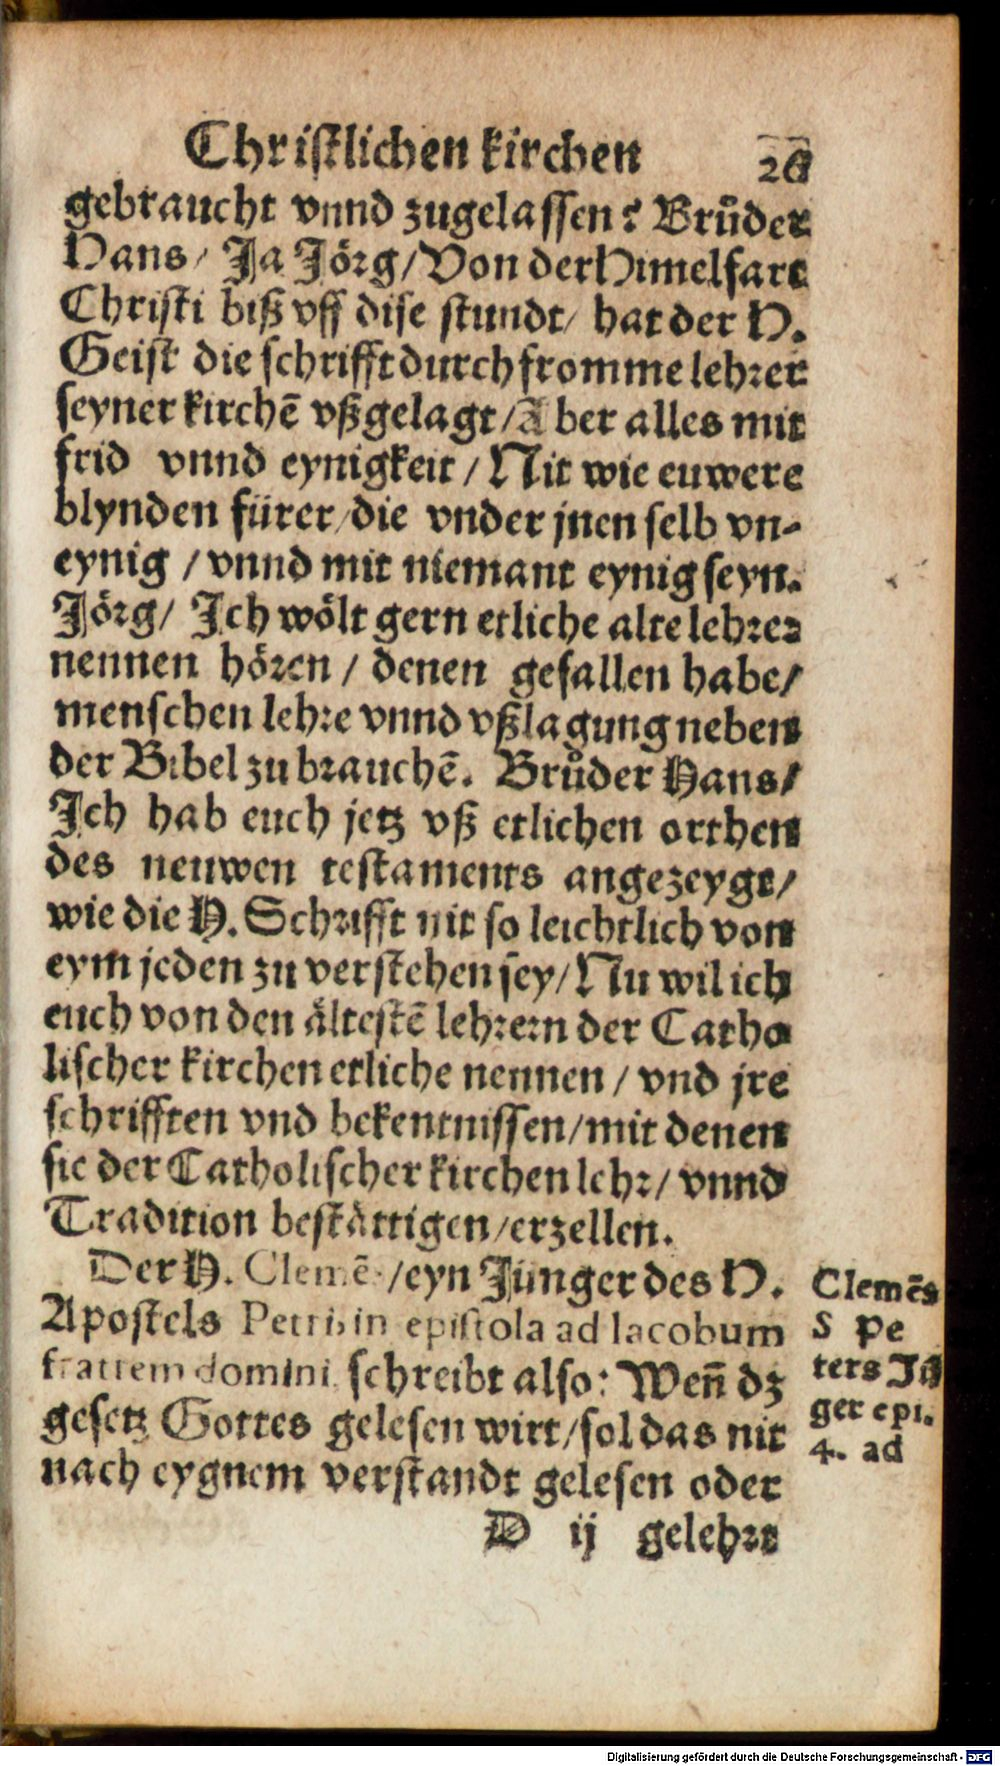 Christlichen kirchen 26
gebraucht vnnd zugelassen? Brůder
Hans/ Ja Jörg/Von der Himelfart
Christi biß vff dise stundt/ hat der H.
Geist die schrifft durch fromme lehrer
seyner kirchē vßgelagt/Aber alles mit
frid vnnd eynigkeit/Nit wie euwere
blynden fürer/die vnder jnen selb vn-
eynig/vnnd mit niemant eynig seyn.
Jörg/ Ich wölt gern etliche alte lehrer
nennen hören/ denen gefallen habe/
menschen lehre vnnd vßlagung neben
der Bibel zu brauchē. Brůder Hans/
Ich hab euch jetz vß etlichen orthen
des neuwen testaments angezeygt/
wie die H. Schrifft nit so leichtlich von
eym jeden zu verstehen sey/Nu wil ich
euch von den ältestē lehrern der Catho
lischer kirchen etliche nennen/ vnd jre
schrifften vnd bekentnissen/mit denen
sie der Catholischer kirchen lehr/ vnnd
Tradition bestättigen/erzellen.
Der H. Clemēs/eyn Jünger des H.
Apostels Petri, in epistola ad Iacobum
fratrem domini, schreibt also: Wenn̄ dz
gesetz Gottes gelesen wirt/sol das nit
nach eygnem verstandt gelesen oder
D ij gelehrt
Clemēs
S Pe
ters Jü
ger epi.
4. ad
Digitalisierung gefördert durch die Deutsche Forschungsgemeinschaft - DFG